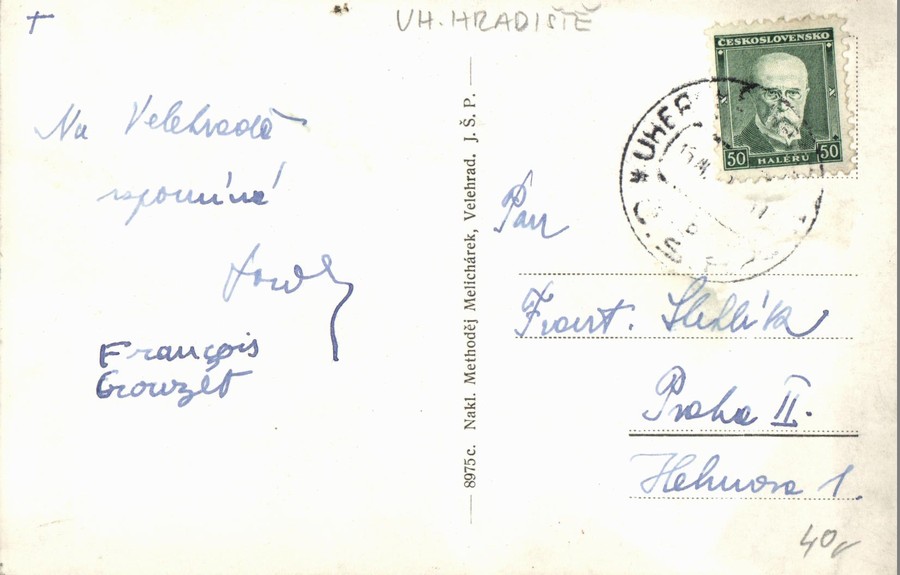 UH. HRADIŠTĚ
Na Velehradě
vzpomíná
François
Crouzet
8975c. Nakl. Methoděj Melichárek, Velehrad. J. Š. P.
ČESKOSLOVENSKO
50 HALÉŘŮ 50
UHER
Pan
Frant. Sedlík
Praha II.
1.
40,